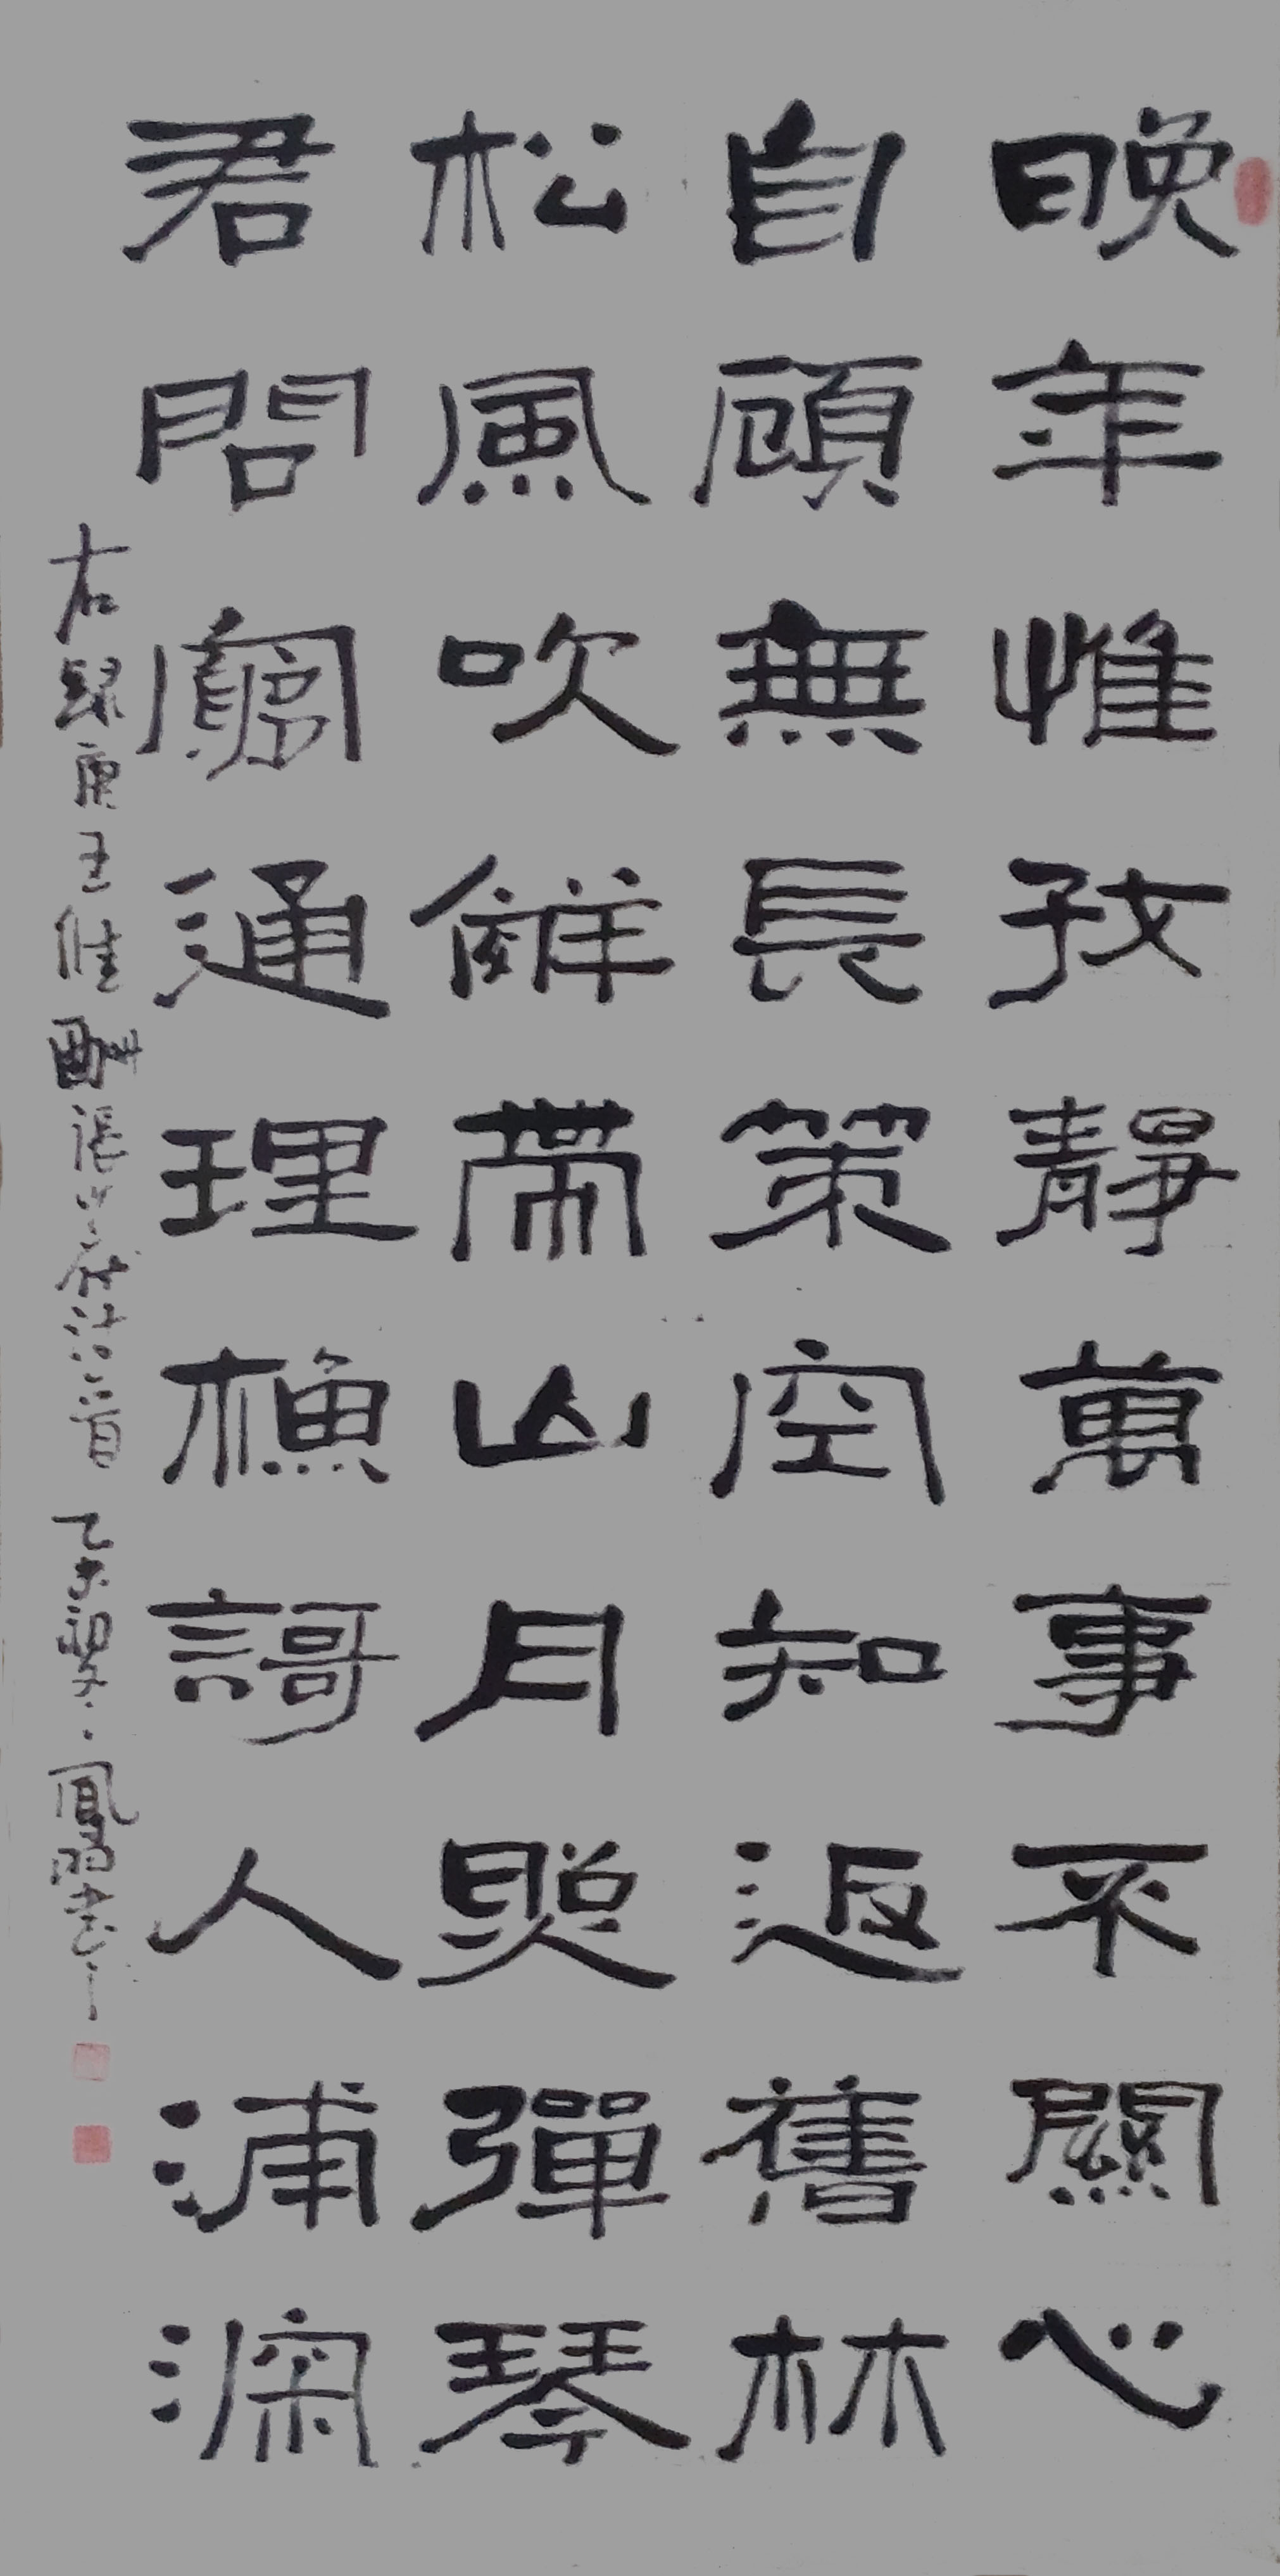 晚年惟好靜萬事不關心
自顧無長策空知返舊林
松風吹解帶山月照彈琴
君問窮通理樵謌人浦深
右錄唐王維酬張少府詩一首 乙未 鳳 書